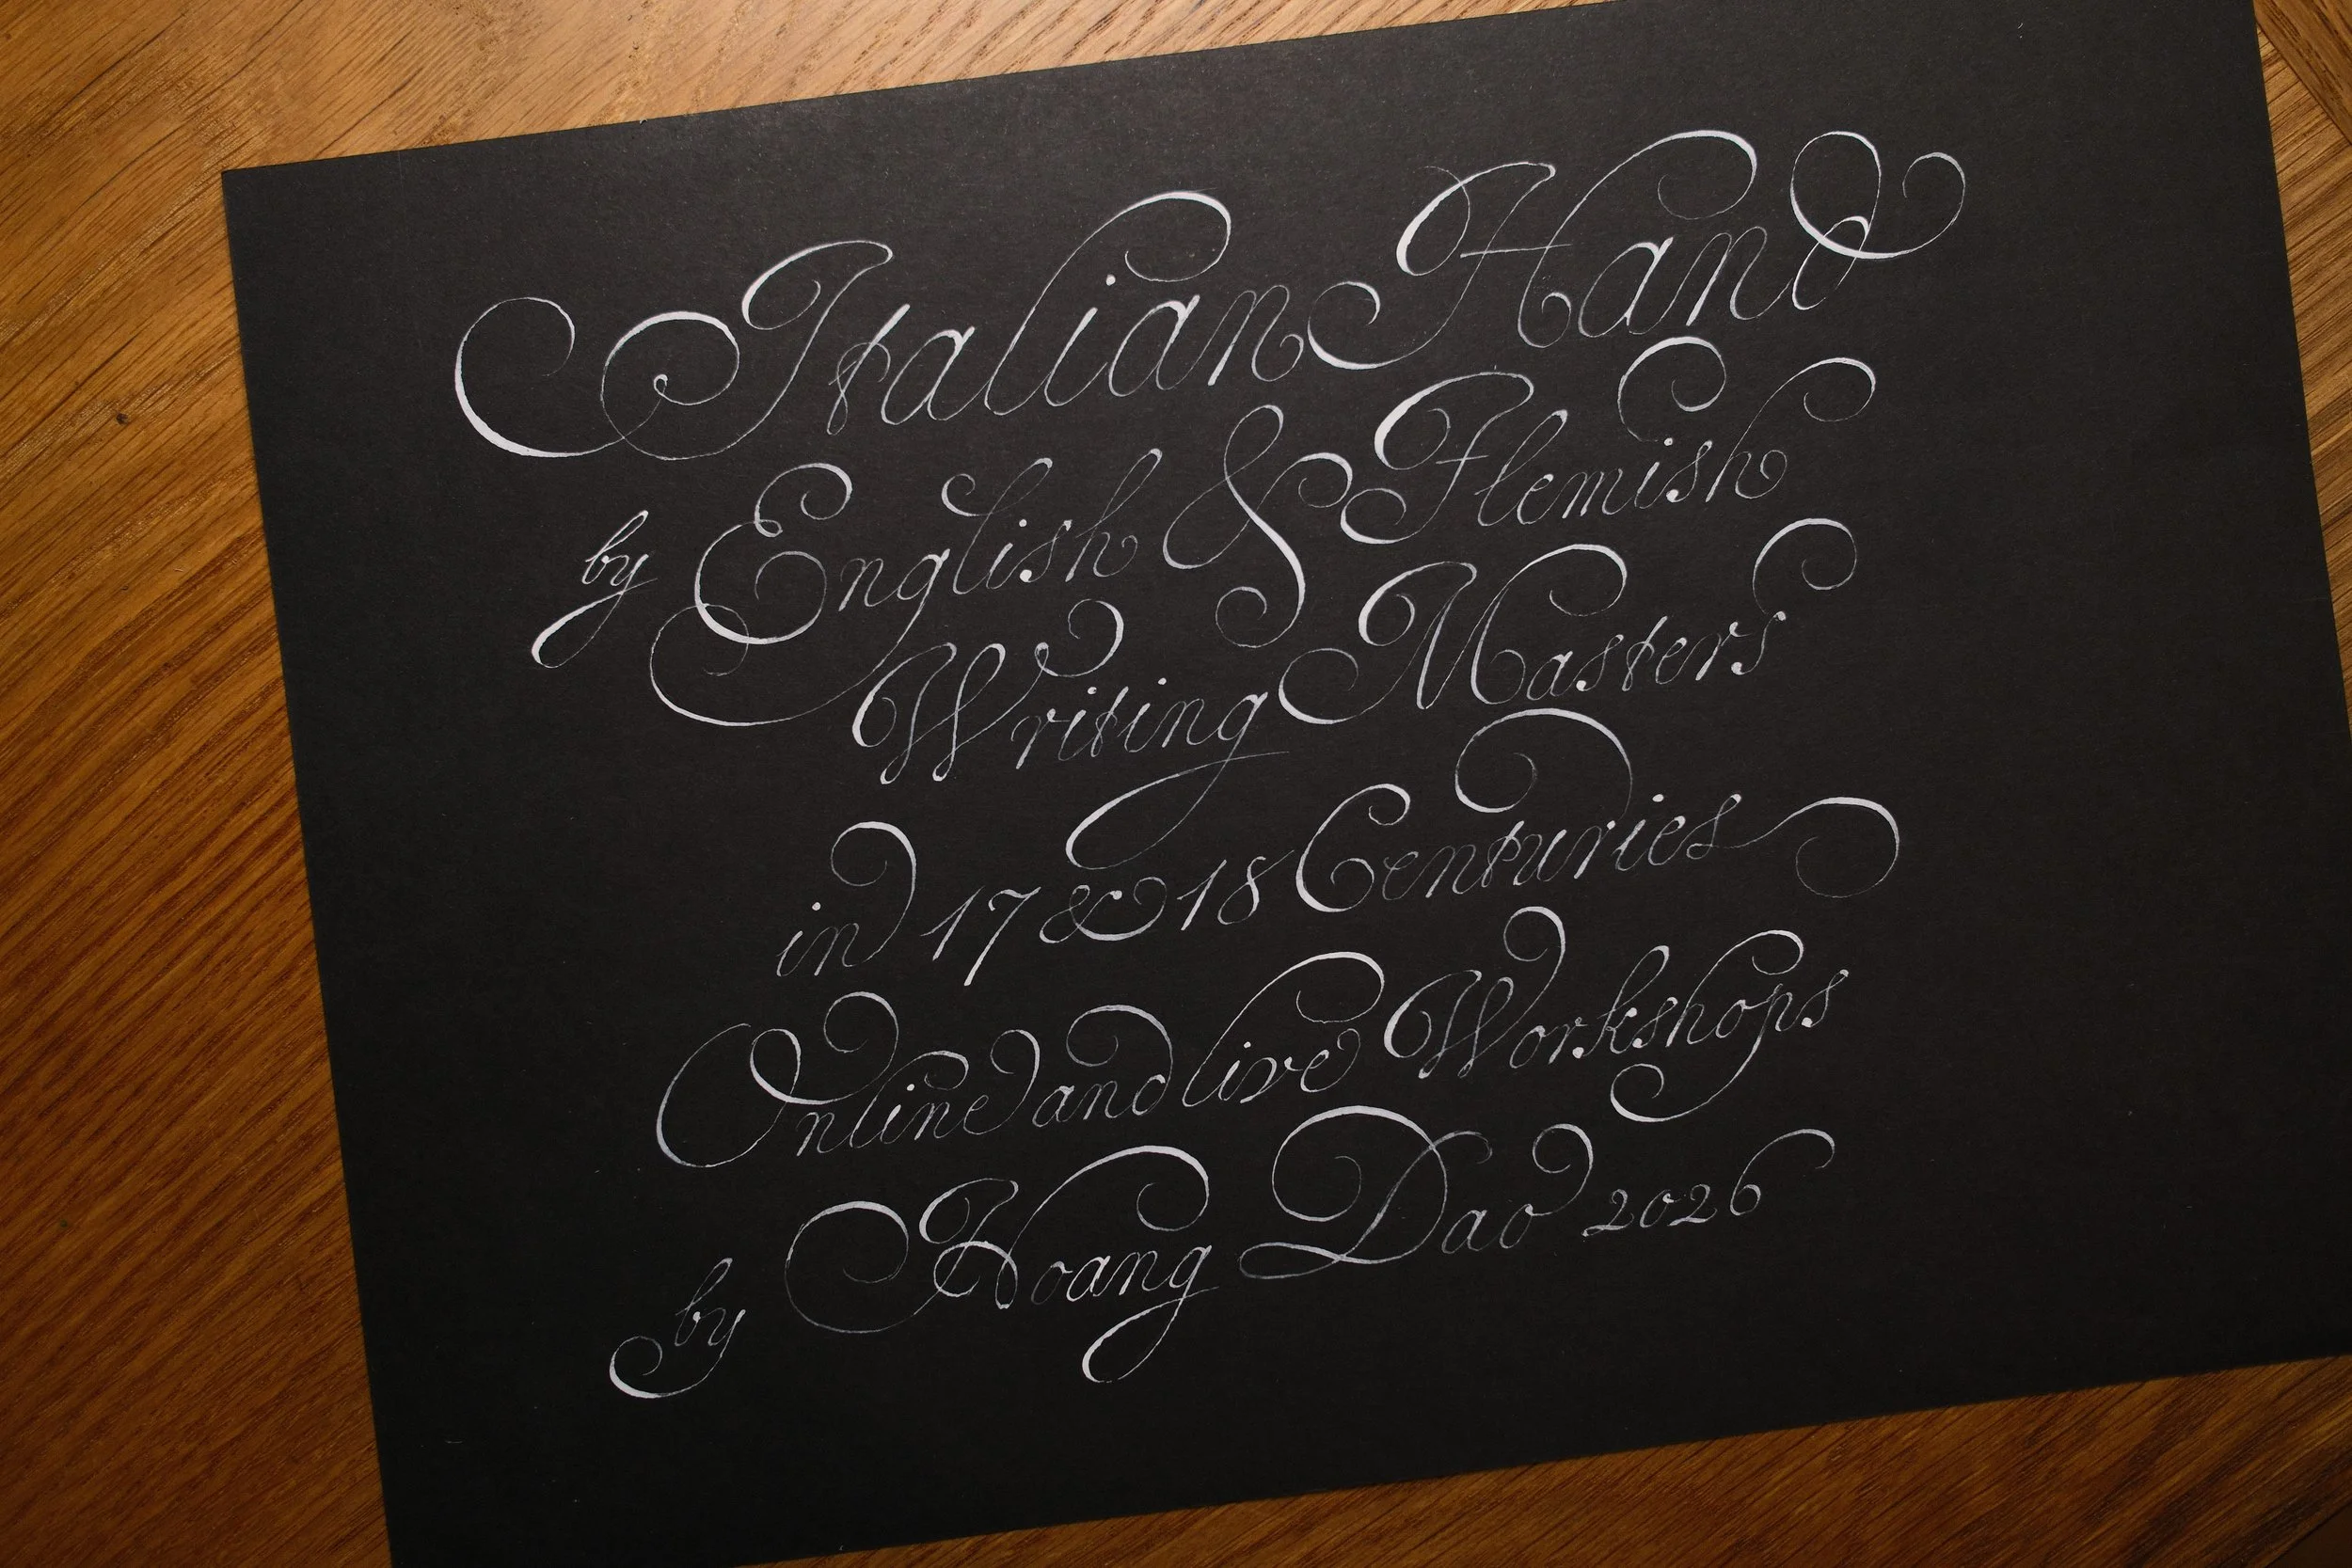 Italian Hand
by English & Flemish
Writing Masters
in 17 & 18 Centuries
Online and live Workshops
by Hoang Dao 2026